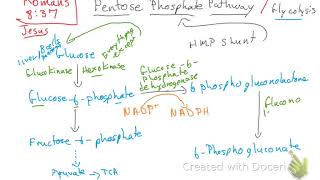 Romans
8:37
Jesus
Pentose Phosphate Pathway
/ Glycolysis
HMP shunt
Glucose
Glucokinase
Hexokinase
Glucose-6-phosphate
Glucose-6-
phosphate
dehydrogenase
6 phosphogluconolactone
NADP+
NADPH
Glucono
Fructose-6-phosphate
6-Phosphogluconate
Pyruvate → TCA
Created with Doceri